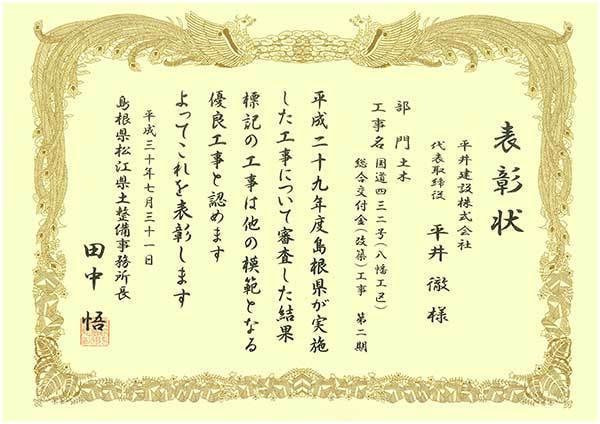 表彰状
平井建設株式会社
代表取締役 平井 徹 様
部門 土木
工事名 国道四三二号(八幡工区)
総合交付金(改築)工事 第二期
平成二十九年度島根県が実施
した工事について審査した結果
標記の工事は他の模範となる
優良工事と認めます
よってこれを表彰します
平成三十年七月三十一日
島根県松江県土整備事務所長
田中 悟